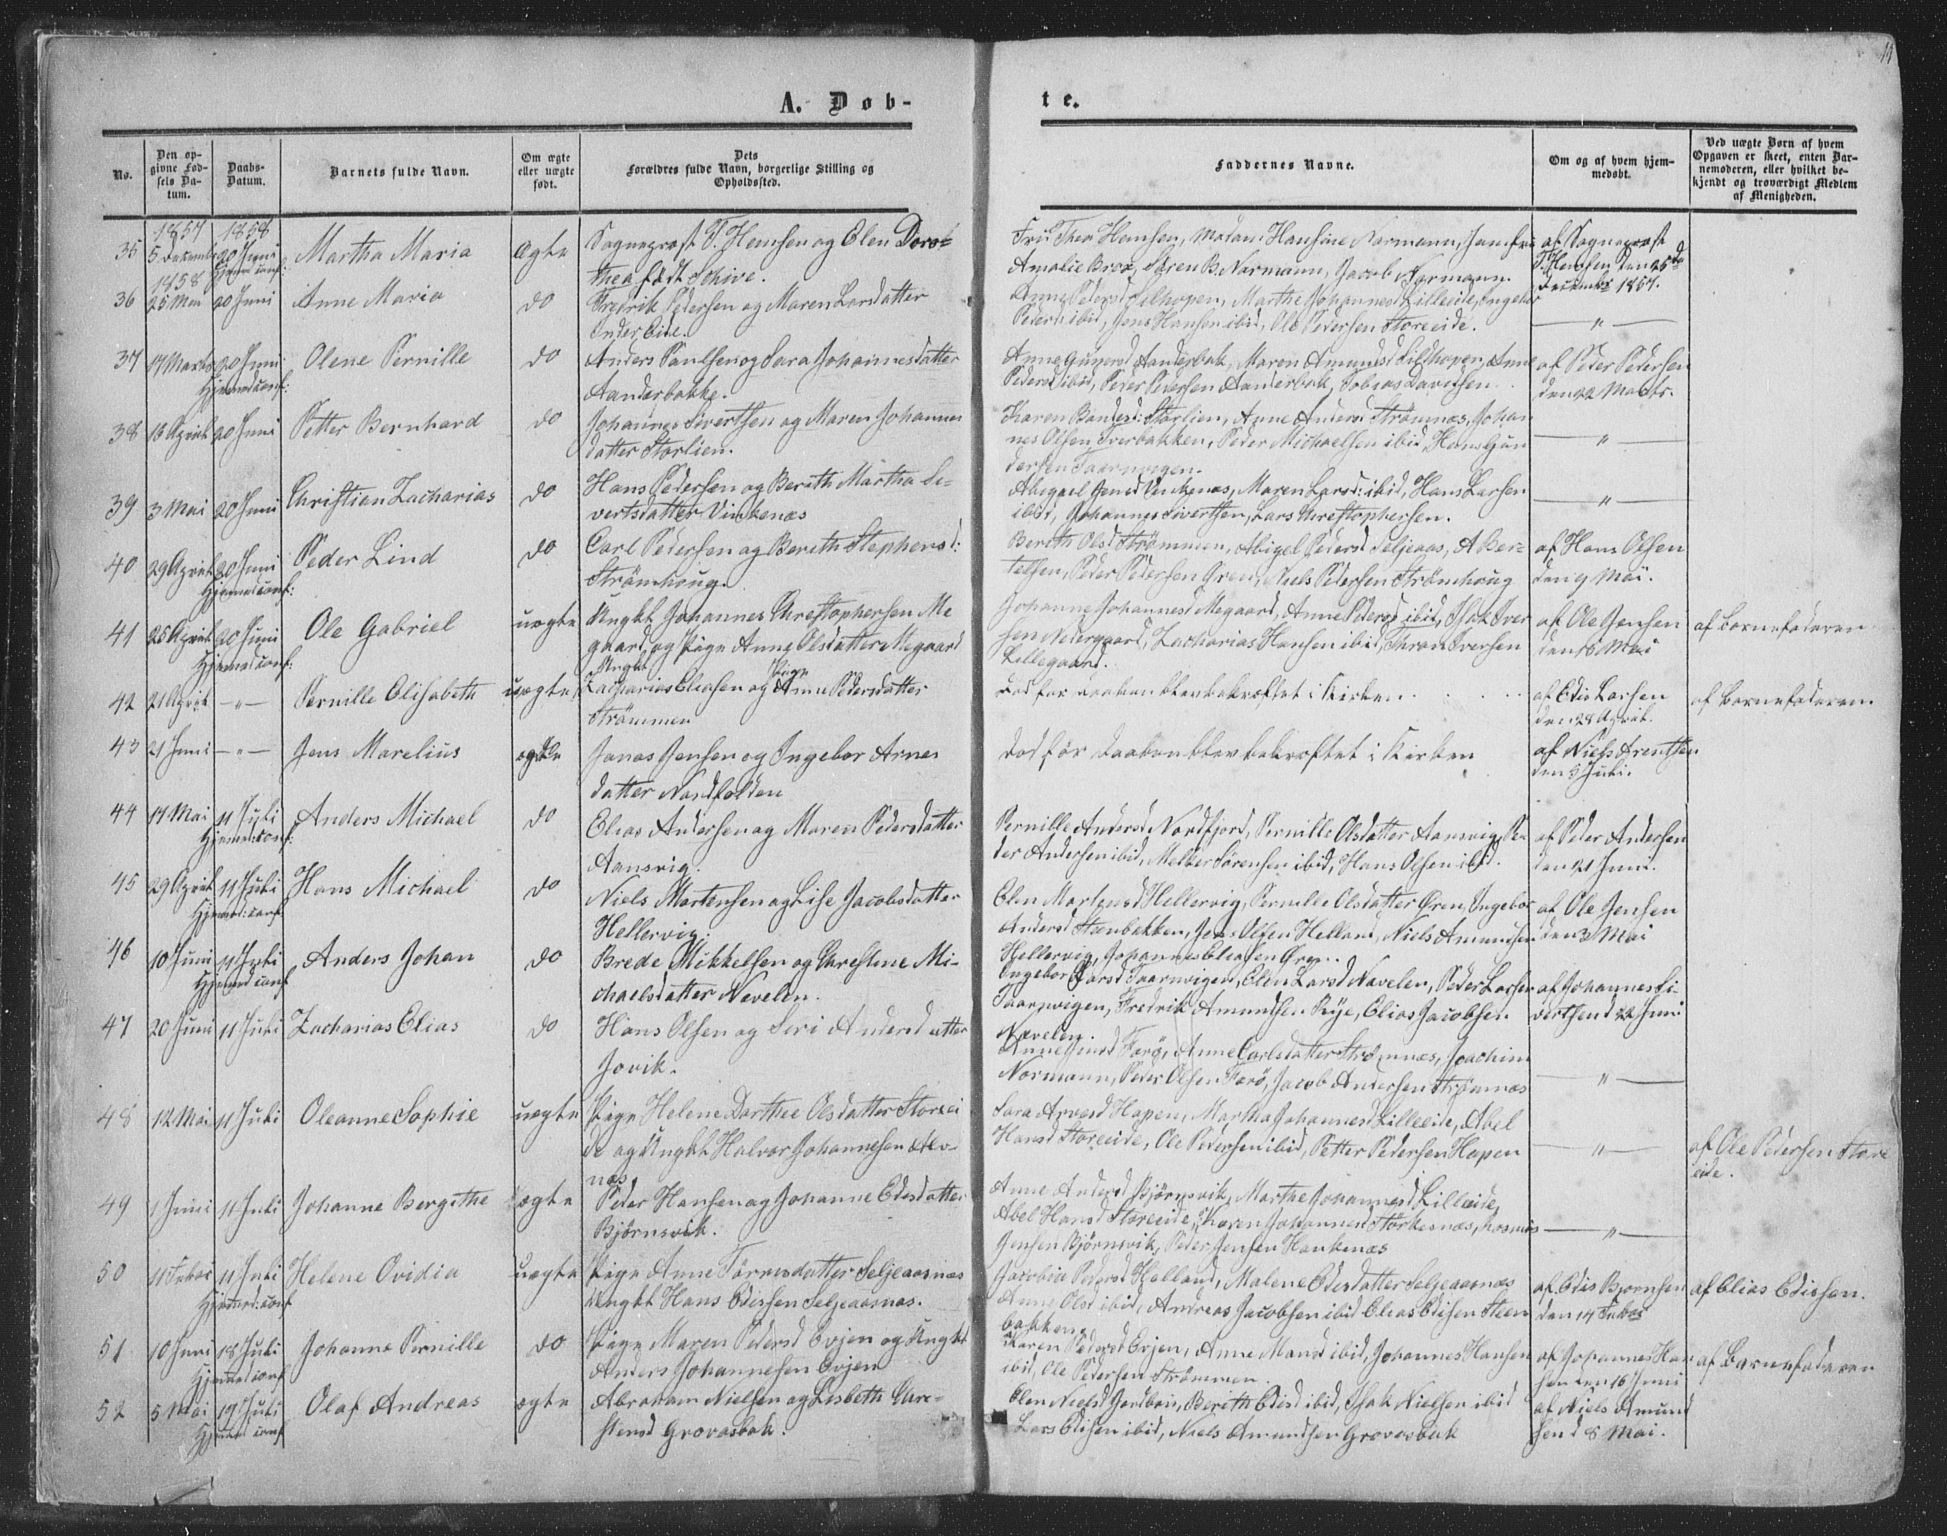 A. Døb-
te.
11
No.
Den op-
givne Fød-
sels Da-
tum.
Daabs-
Datum.
Barnets fulde Navn.
Om ægte
eller uægte
født.
Dets
Forældres fulde Navn, borgerlige Stilling og
Opholdssted.
Faddernes Navne.
Om og af hvem hjem-
medøbt.
Ved uægte Børn af hvem
Opgaven er skeet, enten Bar-
nemoderen, eller hvilket be-
kjendt og troværdigt Medlem
af Menigheden.
1857 1858
35 5 Decemb 20 Juni Martha Maria ægte Sogneprest T. Hemsen og Elen Doro-
Hjemd conf:
thea født Schive.
Fru Thea Hemsen, Madam Hansine Normann, Jomfru
Amalie Brox, Søren B. Normann, Jacob Normann.
af Sogneprest
T. Hemsen den 25de
December 1857.
1858
36 25 Mai 20 Juni Anne Maria do Fredrik Pedersen og Maren Larsdatter
Indereide.
Anne Pedersd Selhopen, Marthe Johannesd Lilleeide, Ingebor
Pedersd ibid, Jens Hansen ibid, Ole Pedersen Storeeide.
— " —
37 17 Marts 20 Juni Olene Pernille do Anders Paulsen og Sara Johannesdatter
Hjemmd conf:
Aanderbakke.
Anne Gunersd Aanderbak, Maren Amundsd Sildhopen, Anne
Pedersd ibid, Peder Pedersen Aanderbak, Tobias Davidsen.
af Peder Pedersen
den 22 Marts.
38 16 April 20 Juni Petter Bernhard do Johannes Sivertsen og Maren Johannes
datter Storlien.
Karen Bandesd: Storlien, Anne Andersd Strømnæs, Johan
nes Olsen Tverbakken, Peder Michaelsen ibid Hans Gun
dersen Taarnvigen.
— " —
39 3 Mai 20 Juni Christian Zacharias do Hans Pedersen og Berith Martha Si-
vertsdatter Vinkenæs
Abegael Jensd Vinkenæs, Maren Larsd: ibid, Hans Larsen
ibid, Johannes Sivertsen, Lars Chrestophersen.
— " —
40 29 April 20 Juni Peder Lind do Carl Pedersen og Bereth Stephensd:
Hjemmd conf:
Strømhoug.
Bereth Olsd Strømmen, Abigel Pedersd Seljeaas, A Ber-
telsen, Peder Pedersen Øren, Niels Pedersen Strømhoug
af Hans Olsen
den 9 Mai.
41 25 April 20 Juni Ole Gabriel uægte Ungkt Johannes Chrestophersen Me
Hjemmd conf:
gaard og Pige Anne Olsdatter Megaard
Johanne Johannesd Megaard, Anne Pedersd ibid, Isak Iver
sen Nedergaard, Zacharias Hansen ibid, Thron Iversen
Lillegaard.
af Ole Jensen
den 16 Mai
af Barnefaderen
42 21 April — " — Pernille Elisabeth uægte Ungkt Zacharias Eliasen og Pige Anne Pedersdatter
Strømmen
død før daaben blev bekræftet i Kirken.
af Edis Larsen
den 28 April.
af Barnefaderen.
43 21 Juni — " — Jens Marelius ægte Jonas Jensen og Ingebor Arnes
datter Nordfolden
død før daaben blev bekræftet i Kirken
af Niels Arentsen
den 3 Juli.
44 17 Mai 11 Juli Anders Michael do Elias Andersen og Maren Pedersdatter
Hjemmd: conf:
Aansvig.
Pernille Andersd Nordfjord, Pernille Olsdatter Aansvig, Pe-
der Andersen ibid, Melker Sørensen ibid, Hans Olsen ibid.
af Peder Andersen
den 21 Juni.
45 29 April 11 Juli Hans Michael do Niels Martensen og Lise Jacobsdatter
Hjemmd: conf:
Hellervig.
Elen Martensd Hellervig, Pernille Olsdatter Øren, Ingebor
Andersd Steenbakken, Jens Olsen Helland, Niels Amundsen
Hellervig, Johannes Eliasen Øren.
af Ole Jensen
den 3 Mai
46 10 Juni 11 Juli Anders Johan do Brede Mikkelsen og Chrestine Mi-
Hjemmd conf
chaelsdatter Nevelen.
Ingebor Larsd Taarnvigen, Elen Larsd Navelen, Peder Larsen
Taarnvigen, Fredrik Amundsen Rye, Elias Jacobsen
Nævelen.
af Johannes Si-
vertsen d 22 Juni
47 20 Juni 11 Juli Zacharias Elias do Hans Olsen og Siri Andersdatter
Jovik.
Anne Jensd Farø, Anne Carlsdatter Strømnæs, Joachim
Normann, Peder Olsen Farø, Jacob Andersen Strømnæs
— " —
48 12 Mai 11 Juli Oleanne Sophie uægte Pige Helene Dorthee Olsdatter Storeei
de og Ungkt Halvor Johannesen Alv-
næs
Sara Arvesd Hopen, Martha Johannesd Lilleeide, Abel
Hansd Storeeide, Ole Pedersen ibid, Petter Pedersen Hopen
— " —
af Ole Pedersen Store
eide.
49 1 Juni 11 Juli Johanne Bergithe ægte Peder Hansen og Johanne Edisdatter
Bjørnsvik.
Anne Andersd Bjørnsvik, Marthe Johannesd Lilleeide,
Abel Hansd Storeeide, Karen Johannesd Størkesnæs, Rasmus
Jensen Bjørnsvik, Peder Jensen Hankenæs
— " —
50 11 Febr 11 Juli Helene Ovidia uægte Pige Anne Tørresdatter Seljeaasnæs
Hjemmd: conf
Ungkt Hans Edissen Seljeaasnæs.
Jacobia Pedersd Helland, Malene Edisdatter Seljeaasnæs
Anne Olsd ibid, Andreas Jacobsen ibid Elias Edisen Steen
bakken.
af Edis Bjørnsen
den 14 Febr
af Elias Edissen.
51 10 Juni 18 Juli Johanne Pernille do Pige Maren Pedersd Evjen og Ungkt
Hjemmd conf
Anders Johannesen Evjen
Karen Pedersd Evjen, Anne Mansd ibid, Johannes Hansen
ibid, Ole Pedersen Strømmen.
af Johannes Han
sen den 16 Juni
af Barnefaderen
52 5 Mai 19 Juli Olaf Andreas ægte Abraham Nielsen og Lisbeth Chre-
Hjemmd conf
stensd Grovasbak.
Elen Nielsd Jordbro, Bereth Edisd ibid, Isak Nielsen ibid
Lars Edisen ibid, Niels Amundsen Grovasbak
af Niels Amund
sen d 8 Mai.